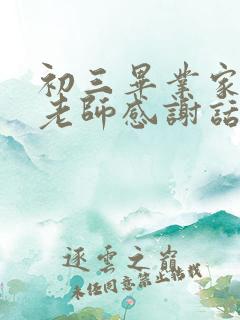 初三畢業家
老師感謝話
逐雲之巔
未任同意禁止轉载